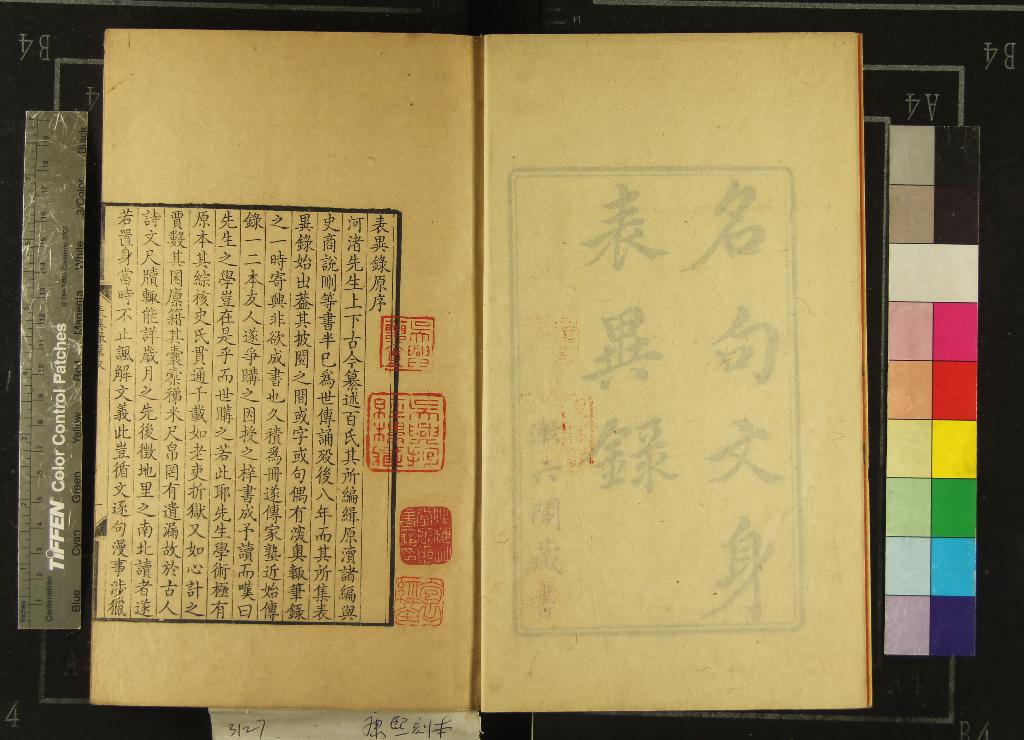 名句文身
表異錄
漱六閣藏書
表異錄原序
河渚先生上下古今纂述百氏其所編緝原瀆諸編與
史商說刪等書半已為世傳誦歿後八年而其所集表
異錄始出葢其披閱之間或字或句偶有深奧輒筆錄
之一時寄興非欲成書也久積為冊遂傳家塾近始傳
錄一二本友人遂爭購之因授之梓書成予讀而嘆曰
先生之學豈在是乎而世購之若此耶先生學術極有
原本其綜核史氏貫通千載如老吏折獄又如心計之
賈數其囷廩籍其囊橐稊米尺帛罔有遺漏故於古人
詩文尺牘輒能詳歲月之先後徵地里之南北讀者遂
若置身當時不止諷解文義此豈循文逐句漫事涉獵
3127
康熙刻本
TIFFEN Color Control Patches
© The Tiffen Company, 2007
Inches
Centimetres
Blue
Cyan
Green
Yellow
Red
Magenta
White
3/Color
Black
B4
B4
A4
4